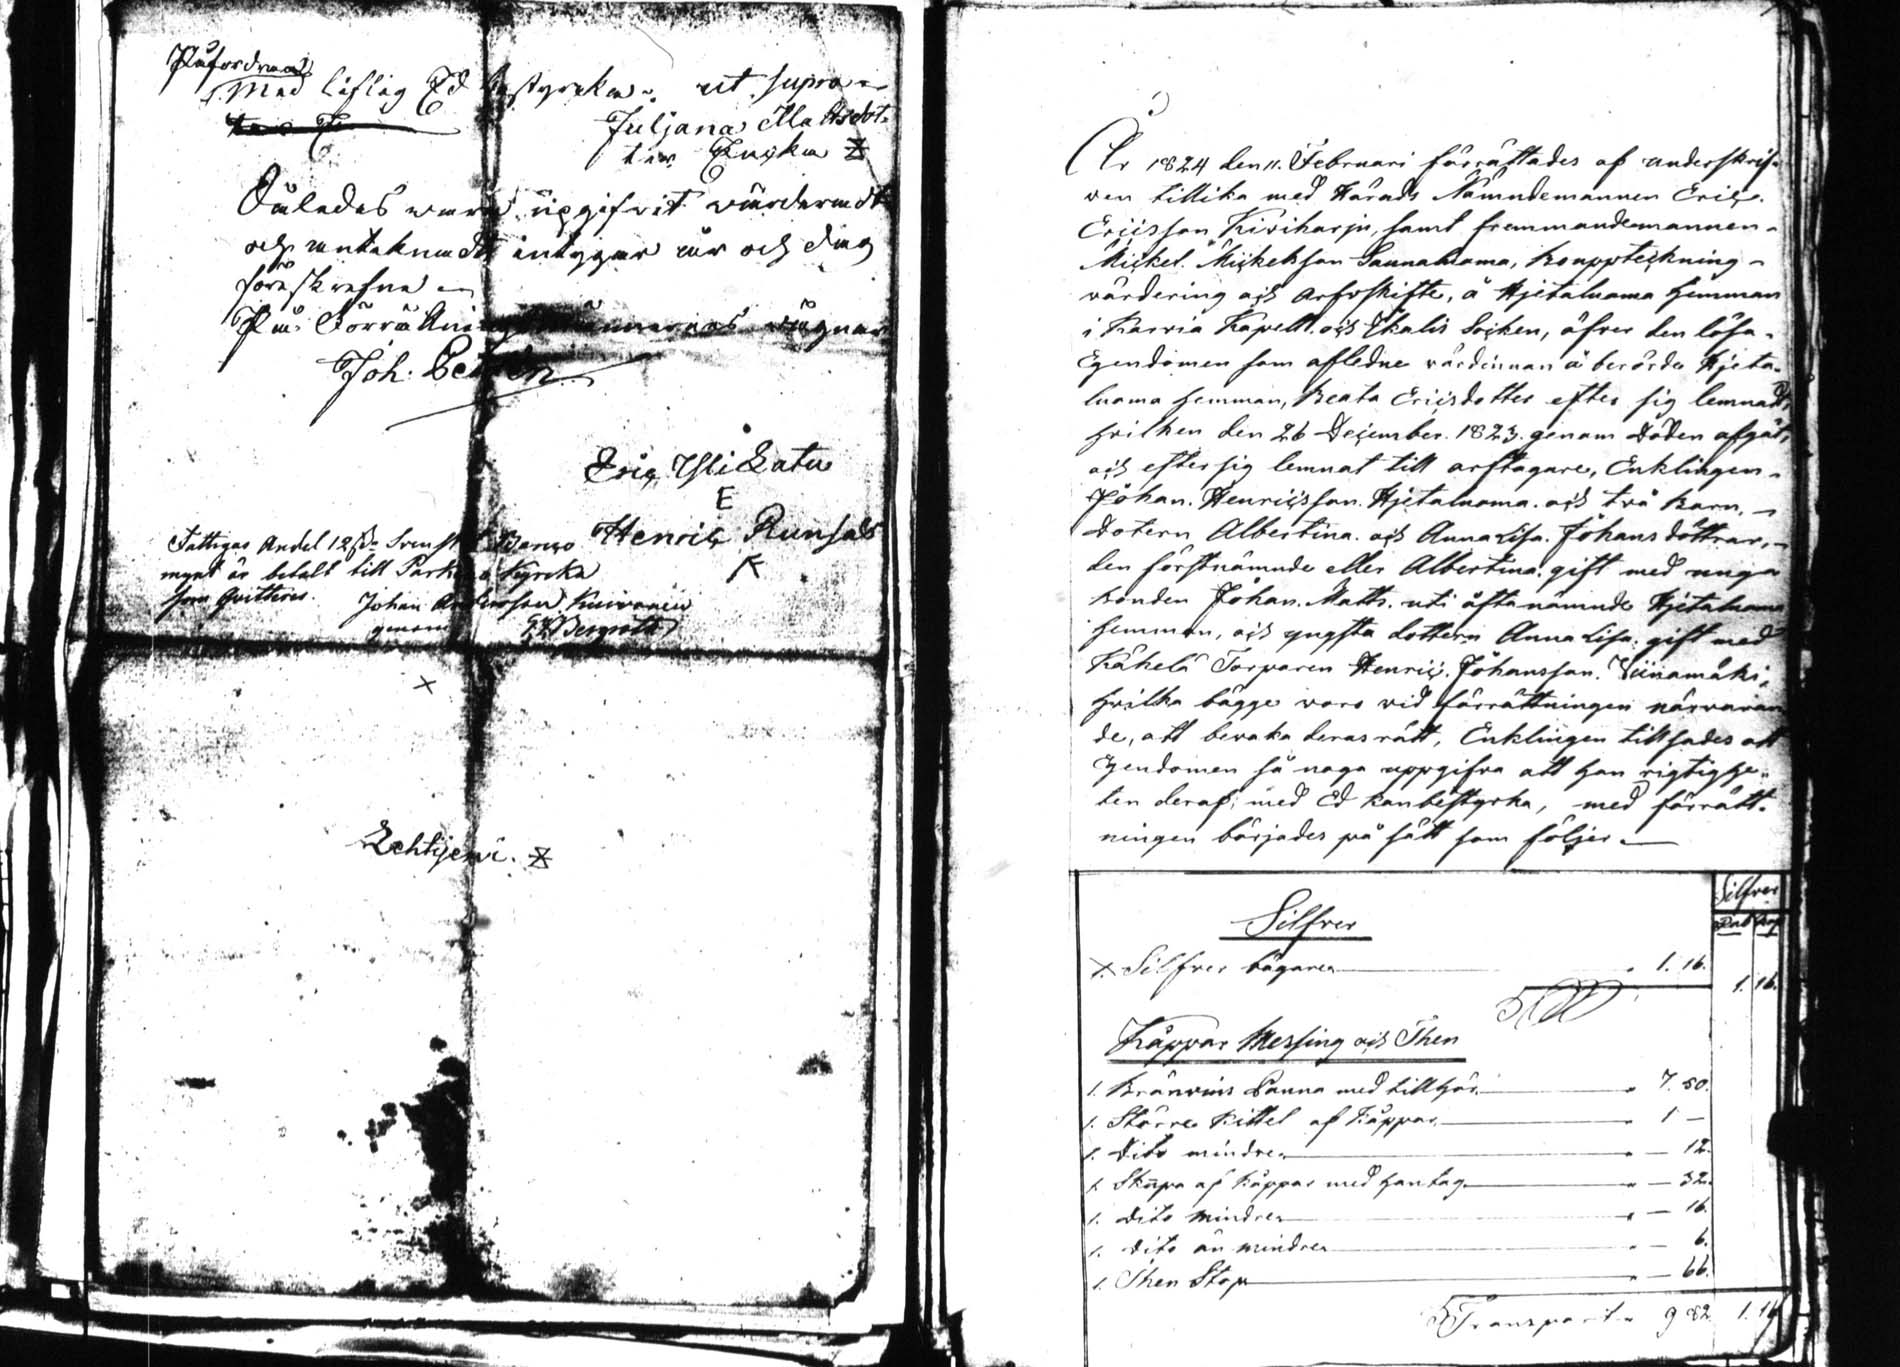 Påfordran
med liflig Ed bestyrka. ut supra
Juljana Mattsdot-
ter Encka
Således wara upgifvit värderadt
och antecknadt intygar år och dag
föreskrefne
På Förrättningsmännernas wägnar
Joh.
Eric Yli
E
Henric Runsas
Fattigas Andel 12 s. Svenskt Banco
mynt är betalt till Parkano Kyrcka
som qvitteras. Johan Andersson Kuivanen
genom Bergroth
X
Lehtijervi.
År 1824 den 11. Februari förrättades af underskrif-
ven tillika med Härads Nämndemannen Eric
Ericsson Kiviharju, samt fremmandemannen
Mickel Mickelsson Saunaluama, Bouppteckning
värdering och arfvskifte, å Hjetaluama hemman
i Karvia Kapell och Ikalis Socken, öfver den lösa
Egendomen som afledne värdinnan å berörde Hjeta-
luama hemman, Beata Ericsdotter efter sig lemnadt,
hvilken den 26 December 1823 genom döden afgåt,
och efter sig lemnat till arftagare, Enklingen
Johan Henricsson Hjetaluama och två barn,
Dotern Albertina och Anna Lisa Johans döttrar,
den förstnämnde eller Albertina gift med unga
bonden Johan Matts. uti åftanämnde Hjetaluama
hemman, och yngsta dottern Anna Lisa gift med
Kähelä Torparen Henric Johansson Viinamäki,
hvilka bägge voro vid förrättningen närvaran
de, att bevaka deras rätt, Enklingen tillsades att
Egendomen så noga uppgifva att han rigtighe-
ten deraf med Ed kan bestyrka, med förrätt-
ningen börjades på sätt som följer
Silfver
Rub Kop
Silfver
1. Silfver bägare 1. 16.
1. 16.
Kåppar Messing och Then
1. Bränvins Panna med tillhör. 7. 50.
1. Större Kittel af Kåppar 1 —
1. Dito mindre — 12.
1. Skopa af Kåppar med hantag — 32.
1. Dito mindre — 16.
1. Dito än mindre — 6.
1. Then Stop — 66.
Transport 9 82. 1. 16